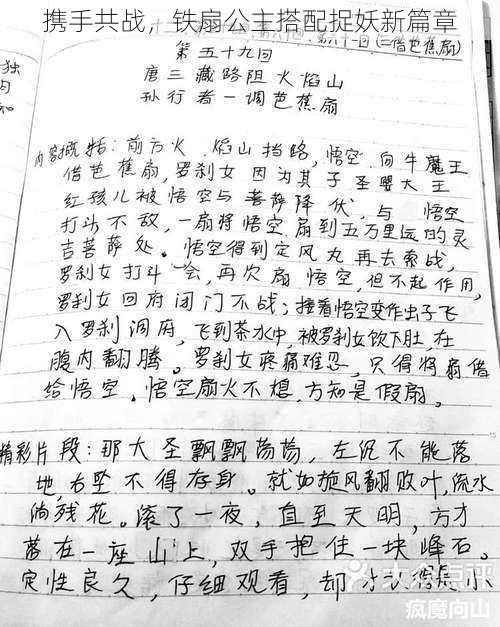 携手共战，铁扇公主搭配捉妖新篇章
(三借芭蕉扇)
第五十九回
唐三藏路阻火焰山
孙行者一调芭蕉扇
独
内容概括：前方火焰山挡路，悟空向牛魔王
借芭蕉扇，罗刹女因为其子圣婴大王
红孩儿被悟空与菩萨降伏，与悟空
打斗不敌，一扇将悟空扇到五万里远的灵
吉菩萨处。悟空得到定风丸再去索战，
罗刹女打斗一会，再次扇悟空，但不起作用，
罗刹女回府闭门不战；接着悟空变作虫子飞
入罗刹洞府，飞到茶水中，被罗刹女饮下肚，在
腹内翻腾。罗刹女疼痛难忍，只得将扇借
给悟空。悟空扇火不熄，方知是假扇。
精彩片段：那大圣飘飘荡荡，左沉不能落
地，右坠不得存身。就如旋风翻败叶，流水
淌残花。滚了一夜，直至天明，方才
落在一座山上，双手抱住一块峰石。
定性良久，仔细观看，却才认得是小
大众点评
疯魔向山